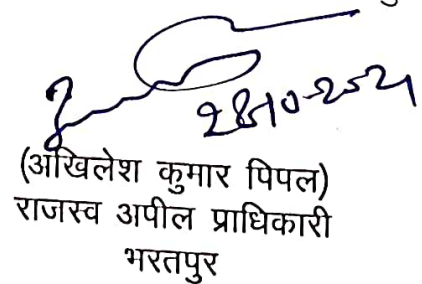 28-10-2021
(अखिलेश कुमार पिपल)
राजस्व अपील प्राधिकारी
भरतपुर